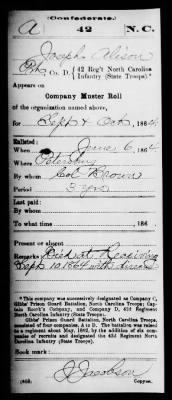 (Confederate.)
A 42 N.C.
Joseph Alison
Pvt, Co. D, 42 Reg't North Carolina
Infantry (State Troops).*
Appears on
Company Muster Roll
of the organization named above,
for Sept & Oct, 1864
Enlisted:
When June 6, 1864
Where Petersburg
By whom Col Brown
Period 3 yrs
Last paid:
By whom
To what time , 186
Present or absent
Remarks: Died at
Sept 10, 1864 with disease
*This company was successively designated as Company C,
Gibbs' Prison Guard Battalion, North Carolina Troops; Cap-
tain Company, and Company D, 42d Regiment
North Carolina Infantry (State Troops).
Gibbs' Prison Guard Battalion, North Carolina Troops,
consisted of four companies, A to D. The battalion was raised
to a regiment about May, 1862, by the addition of six com-
panies of recruits and designated the 42d Regiment North
Carolina Infantry (State Troops).
Book mark:
J Jacobson
Copyist.